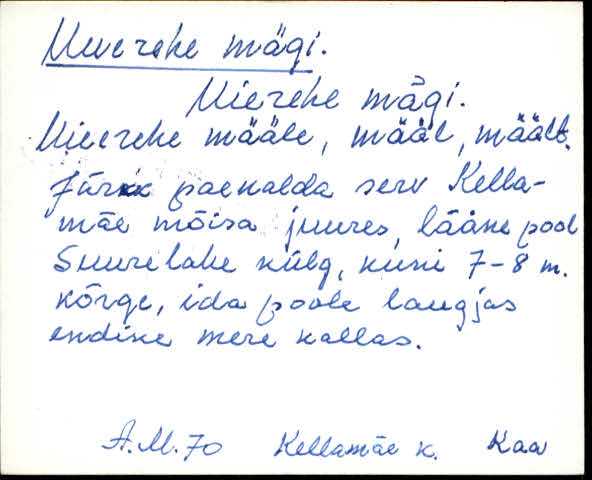 Uuerehe mägi.
Uierehe mägi.
Uierehe määle, määl, mäält.
Järsk paekalda serv Kella-
mäe mõisa juures, lääne pool
Suurelahe külg, kuni 7-8 m.
kõrge, ida poole laugjas
endine mere kallas.
A.M.70 Kellamäe k. Kaa